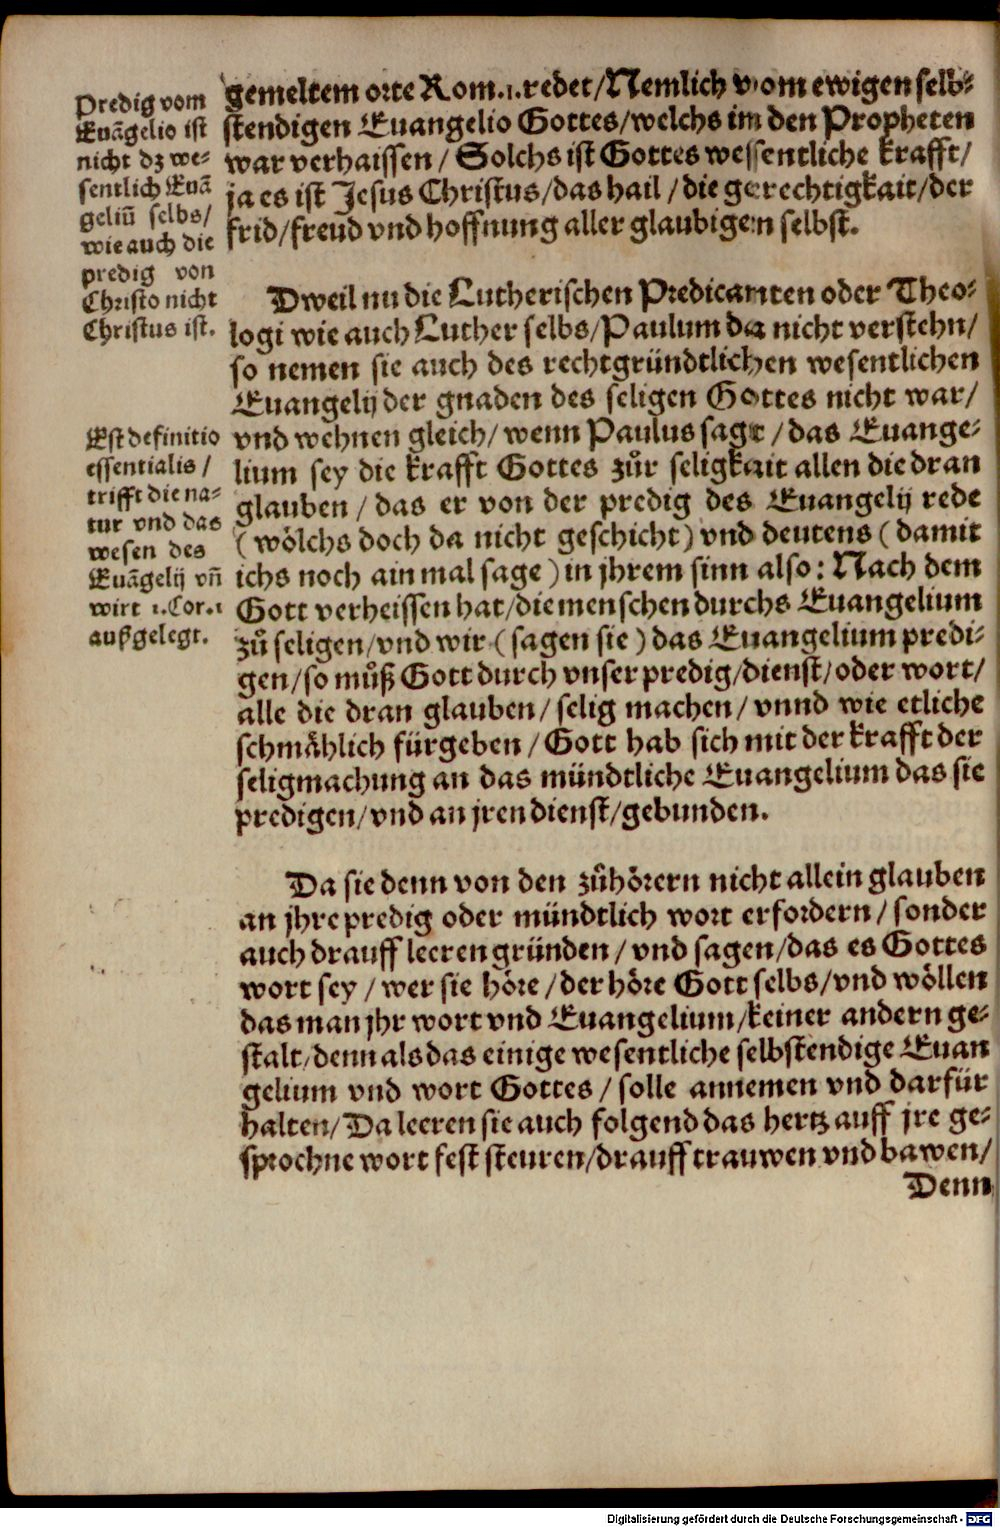 Predig vom
Euãgelio ist
nicht dz we-
sentlich Euã
geliũ selbs/
wie auch die
predig von
Christo nicht
Christus ist.
gemeltem orte Rom.1.redet/Nemlich vom ewigen selb-
stendigen Euangelio Gottes/welchs im den Propheten
war verhaissen/ Solchs ist Gottes wesentliche krafft/
ja es ist Jesus Christus/das hail/die gerechtigkait/der
frid/freud vnd hoffnung aller glaubigen selbst.
Dweil nu die Lutherischen Predicanten oder Theo-
logi wie auch Luther selbs/Paulum da nicht verstehn/
so nemen sie auch des rechtgründtlichen wesentlichen
Euangelij der gnaden des seligen Gottes nicht war/
vnd wehnen gleich/ wenn Paulus sagt/das Euange-
lium sey die krafft Gottes zůr seligkait allen die dran
glauben/ das er von der predig des Euangelij rede
(wölchs doch da nicht geschicht) vnd deutens (damit
ichs noch ain mal sage) in jhrem sinn also: Nach dem
Gott verheissen hat/die menschen durchs Euangelium
zů seligen/vnd wir (sagen sie) das Euangelium predi-
gen/so můß Gott durch vnser predig/dienst/oder wort/
alle die dran glauben/ selig machen/ vnnd wie etliche
schmählich fürgeben/ Gott hab sich mit der krafft der
seligmachung an das mündtliche Euangelium das sie
predigen/vnd an jren dienst/gebunden.
Est definitio
essentialis/
trifft die na-
tur vnd das
wesen des
Euãgelij vñ
wirt 1.Cor.1
außgelegt.
Da sie denn von den zůhörern nicht allein glauben
an jhre predig oder mündtlich wort erfordern/ sonder
auch drauff leeren gründen/ vnd sagen/das es Gottes
wort sey/ wer sie höre/der höre Gott selbs/vnd wöllen
das man jhr wort vnd Euangelium/keiner andern ge-
stalt/denn als das einige wesentliche selbstendige Euan
gelium vnd wort Gottes/ solle annemen vnd darfür
halten/Da leeren sie auch folgend das hertz auff jre ge-
sprochne wort fest steuren/drauff trauwen vnd bawen/
Denn
Digitalisierung gefördert durch die Deutsche Forschungsgemeinschaft - DFG